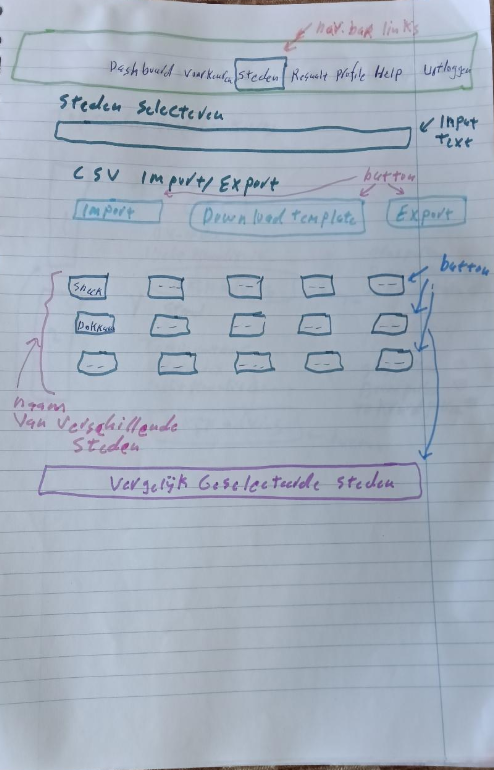 nav.bar links
Dashboard Voorkeuren Steden Resualt Profile Help Uitloggen
Steden Selecteren
Input Text
CSV Import/Export
button
Import Download template Export
button
Sneek -- -- -- --
Dokkum -- -- -- --
-- -- -- -- --
naam
Van Verschillende
Steden
Vergelijk Geselecteerde Steden